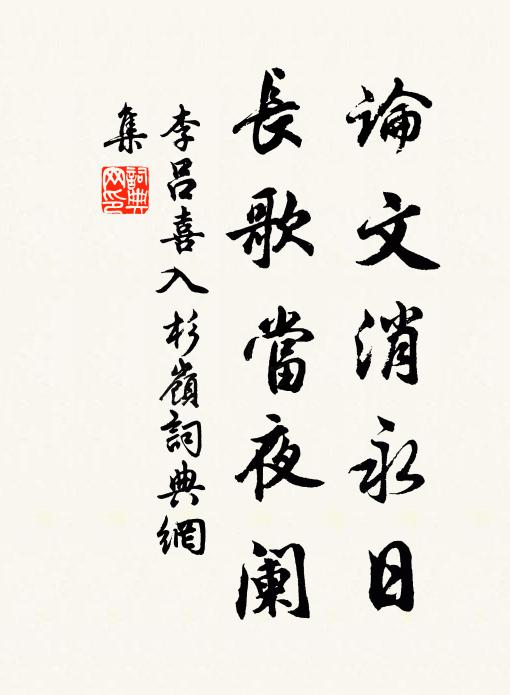 論文消永日
長歌當夜闌
李呂喜入杉嶺詞典網
集
詞典
网印